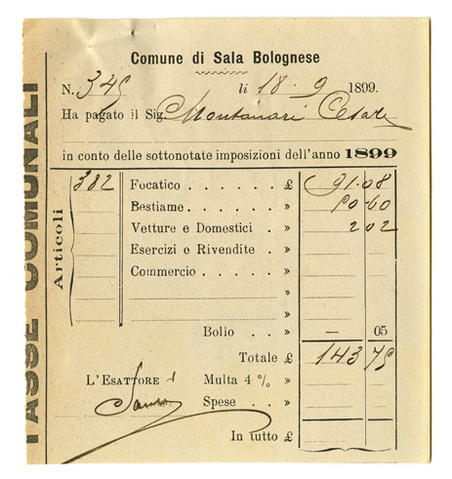 Comune di Sala Bolognese
N. 345 li 18 - 9 1899.
Ha pagato il Sig. Montanari Cesare
in conto delle sottonotate imposizioni dell'anno 1899
TASSE COMUNALI
Articoli
382 Focatico . . . . . . £ 91 08
Bestiame . . . . . . » 50 60
Vetture e Domestici . » 2 02
Esercizi e Rivendite . »
Commercio . . . . . . »
»
»
Bollo . . » — 05
Totale £ 143 75
L'ESATTORE Multa 4 % »
Spese . . »
In tutto £